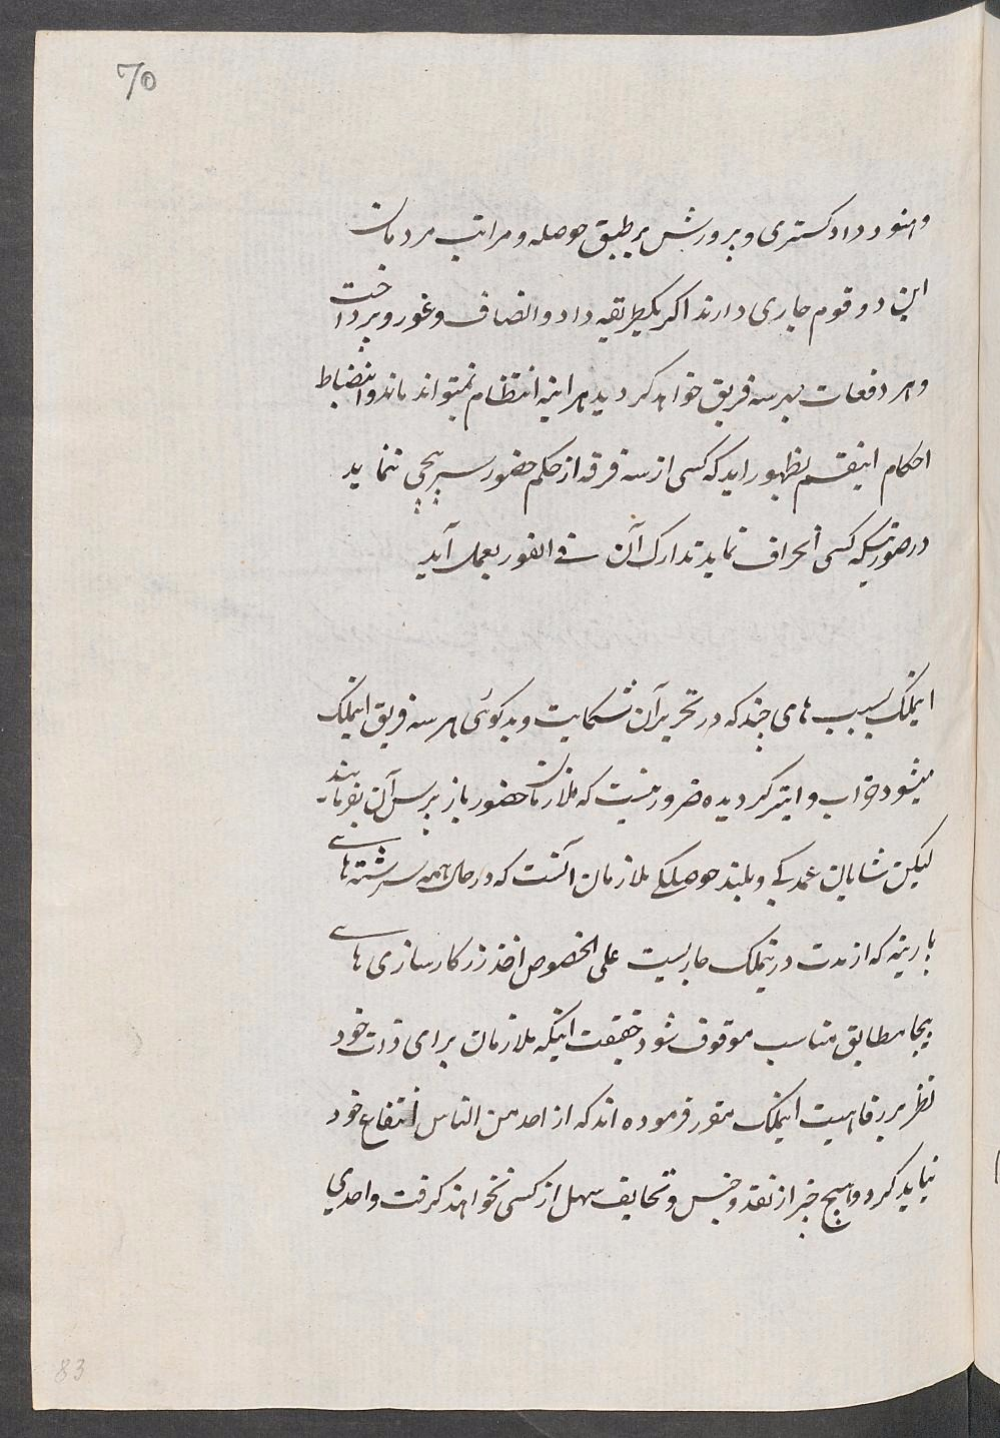 70
و هنود دادکستری و پرورش بر طبق حوصله و مراتب مردمان
این دو قوم جاری دارند اکر بکیطریقه داد و انصاف و غور و پرداخت
و هر دفعات بهر سه فریق خواهد کردید هر اینه انتظام نمیتواند ماند و انضباط
احکام اینقسم بظهور اید که کسی از سه فرقه از حکم حضور سرپیچی ننماید
در صورتیکه کسی انحراف نماید تدارک آن فی الفور بعمل آید
اینملک بسبب های چند که در تحریر آن شکایت و بدکوئی هر سه فریق اینملک
میشود خراب و ابتر کردیده ضرور نیست که ملازمان حضور باز پرس آن بفرمایند
لیکن شایان عمدکی و بلند حوصلکی ملازمان آنست که در حال همه سررشته های
پارینه که از مدت درینملک جاریست علی الخصوص اخذ زر کارسازی های
بیجا مطابق مناسب موقوف شود حقیقت اینکه ملازمان برای ذات خود
نظر بر رفاهیت اینملک مقرر فرموده اند که از احد من الناس انتفاع خود
نباید کرد و هیچ چیز از نقد و جنس و تحایف سهل از کسی نخواهند کرفت و احدی
83